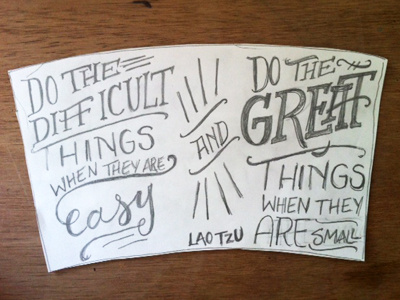 DO THE
DIFFICULT
THINGS
WHEN THEY ARE
easy
AND
DO THE
GREAT
THINGS
WHEN THEY
ARE SMALL
LAO TZU